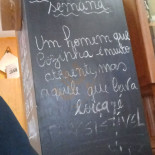 semana
Um homem que
cozinha é muito
atraente, mas
aquele que lava
louça é